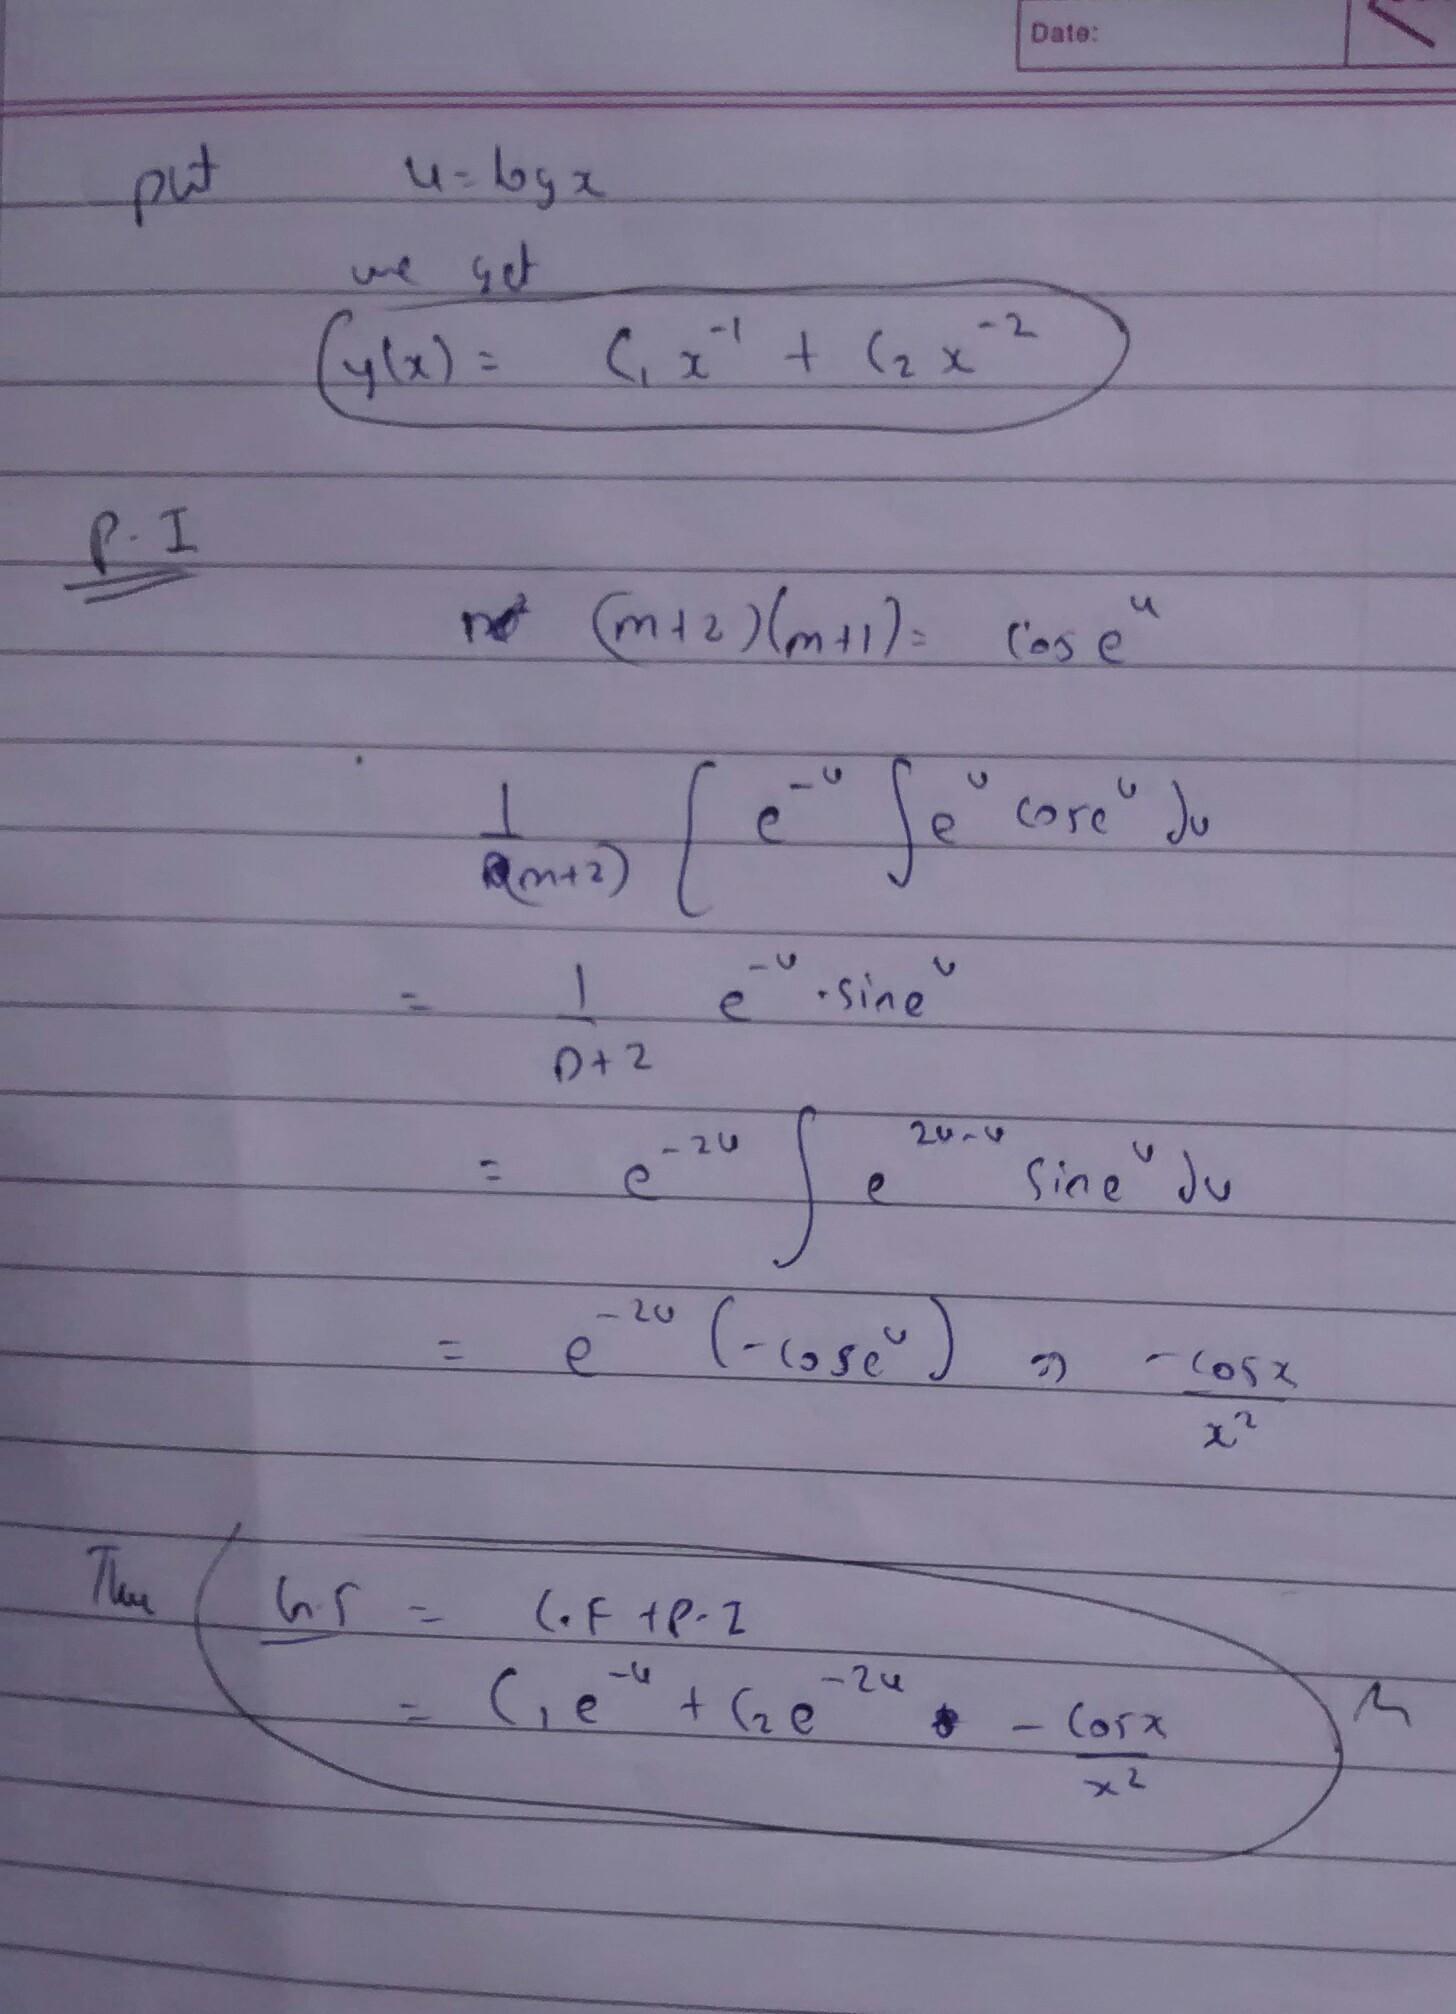 Date:
put u = log x
we get
y(x) = C₁ x⁻¹ + C₂ x⁻²
P.I
(m+2)(m+1) = cos eᵘ
1/(m+2) [ e⁻ᵘ ∫ eᵘ cos eᵘ du
= 1/D+2 e⁻ᵘ · sin eᵘ
= e⁻²ᵘ ∫ e²ᵘ⁻ᵘ sin eᵘ du
= e⁻²ᵘ (-cos eᵘ) ⇒ -cos x/x²
G.S = C.F + P.I
= C₁e⁻ᵘ + C₂e⁻²ᵘ - cos x/x²